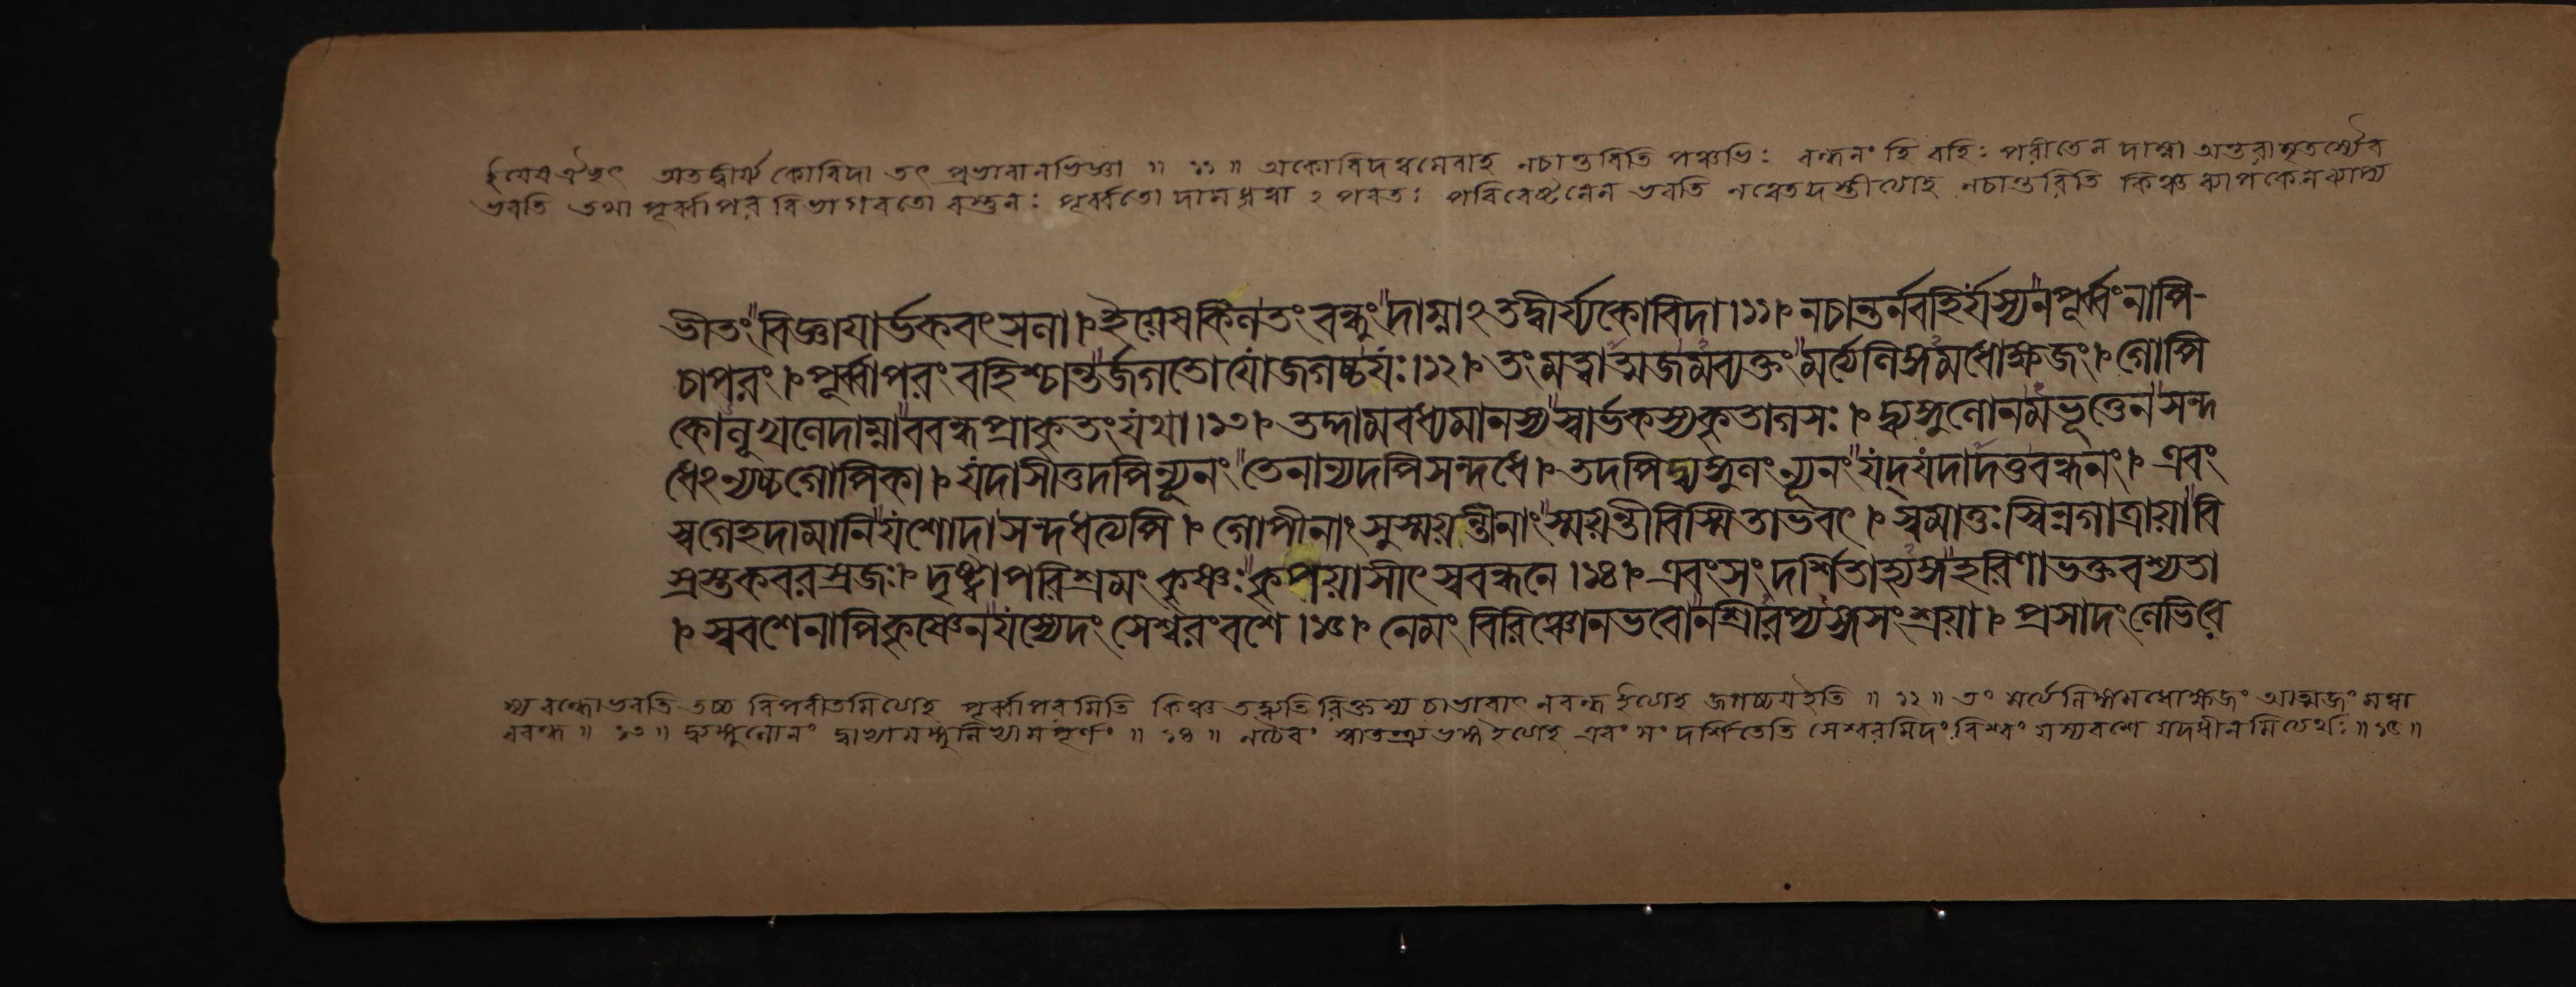 ইযেষ ঐচ্ছৎ অতদ্বীর্য্য কোবিদা তৎ প্রভাবানভিজ্ঞা ॥ ১১ ॥ অকোবিদত্বমেবাহ নচান্তরিতি পঞ্চভিঃ বন্ধনং হি বহিঃ পরীতেন দাম্না অন্তরাবৃতস্যৈব
ভবতি তথা পূর্ব্বাপর বিভাগবতো বস্তুনঃ পূর্ব্বতো দাম ধৃত্বা ২ পরতঃ পরিবেষ্টনেন ভবতি নত্বেতদস্তীত্যাহ নচান্তরিতি কিঞ্চ ব্যাপকেন ব্যাপ্য
ভীতং বিজ্ঞাযার্ভকবৎসলা । ইয়েষকিলতং বদ্ধুং দাম্নাঽতদ্বীর্য্যকোবিদা ।১১। নচান্তর্নবহির্যস্যনপূর্ব্বংনাপি-
চাপরং । পূর্ব্বাপরং বহিশ্চান্তর্জগতোযোজগচ্চযঃ ।১২। তং মত্বাত্মজমব্যক্তং মর্ত্যলিঙ্গমধোক্ষজং । গোপি
কোলূখলেদাম্নাববন্ধপ্রাকৃতংযথা ।১৩। তদ্দামবধ্যমানস্যস্বার্ভকস্যকৃতাগসঃ । দ্ব্যঙ্গুলোনমভূত্তেনসন্দ
ধেঽন্যচ্চগোপিকা । যদাসীত্তদপিন্যূনং তেনান্যদপিসন্দধে । তদপিদ্ব্যঙ্গুলং ন্যূনং যদ্যদাদত্তবন্ধনং । এবং
স্বগেহদামানিযশোদাসন্দধত্যপি । গোপীনাং সুস্ময়ন্তীনাং স্ময়ন্তীবিস্মিতাভবৎ । স্বমাতুঃ স্বিন্নগাত্রায়াবি
স্রস্তকবরস্রজঃ । দৃষ্ট্বাপরিশ্রমং কৃষ্ণঃ কৃপয়াসীৎ স্ববন্ধনে ।১৪। এবংসংদর্শিতাহ্যঙ্গহরিণাভক্তবশ্যতা
। স্ববশেনাপিকৃষ্ণেনযস্যেদং সেশ্বরংবশে ।১৫। নেমং বিরিঞ্চোনভবোনশ্রীরপ্যঙ্গসংশ্রয়া । প্রসাদংলেভিরে
স্য বন্ধোভবতি তচ্চ বিপরীতমিত্যাহ পূর্ব্বাপরমিতি কিঞ্চ তদ্ব্যতিরিক্তস্য চাভাবাৎ নবন্ধ ইত্যাহ জগচ্চযইতি ॥ ১২ ॥ তং মর্ত্যলিঙ্গমধোক্ষজং আত্মজং মত্বা
ববন্ধ ॥ ১৩ ॥ দ্ব্যঙ্গুলোনং ॥ ১৪ ॥ নচৈবং স্বাতন্ত্র্যভঙ্গ ইত্যাহ এবং সং দর্শিতেতি সেশ্বরমিদং বিশ্বং যস্যবশে যদধীনমিত্যর্থঃ ॥ ১৫ ॥